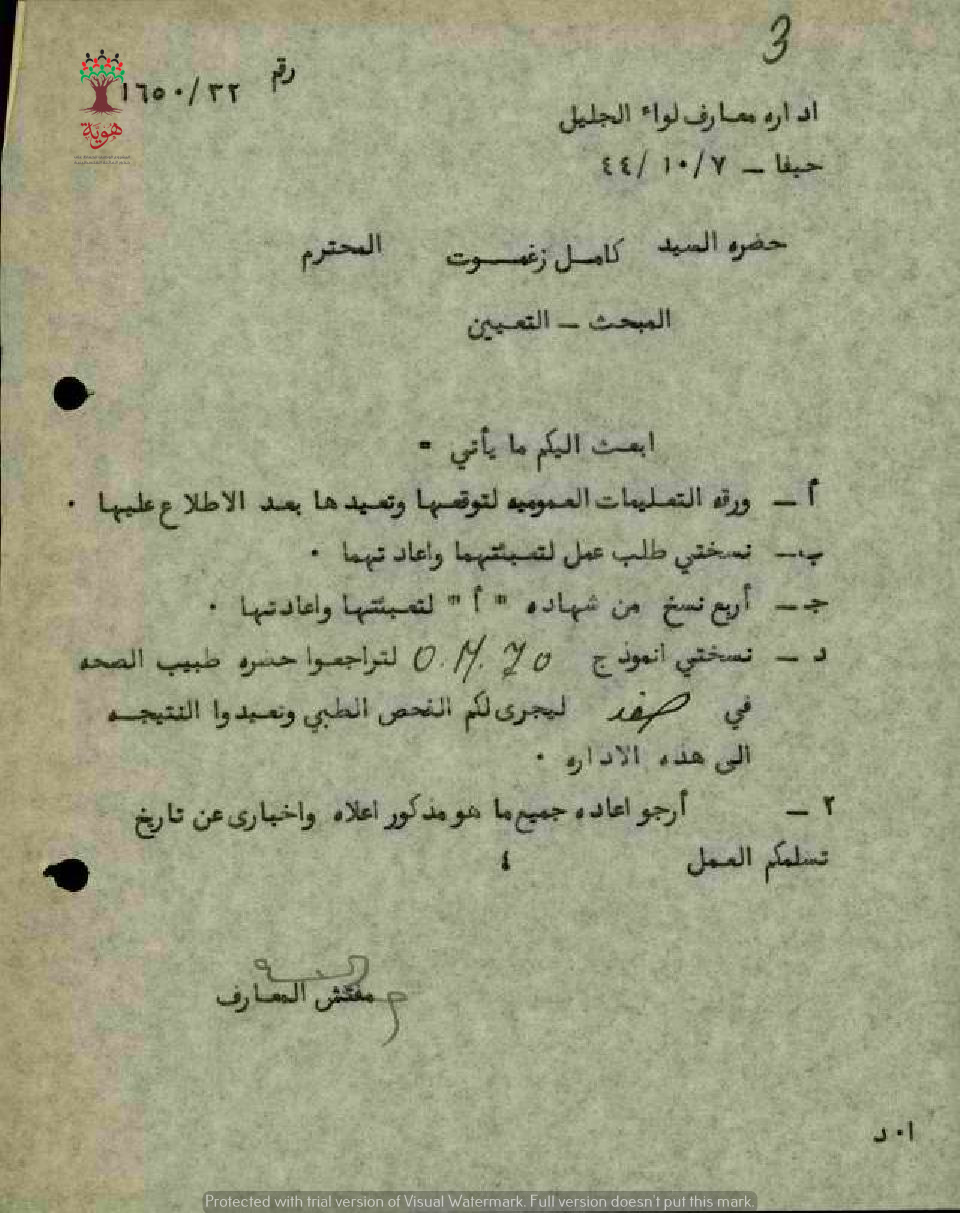 3
رقم ١٦٥٠/٣٢
هوية
اداره معارف لواء الجليل
حيفا – ٧/١٠/٤٤
حضره السيد كامل زغموت المحترم
المبحث – التعيين
ابعث اليكم ما يأتي =
أ – ورقه التعليمات العموميه لتوقعها وتعيدها بعد الاطلاع عليها ٠
ب – نسختي طلب عمل لتعبئتهما واعادتهما ٠
ج – أربع نسخ من شهاده " أ " لتعبئتها واعادتها ٠
د – نسختي انموذج O.M. 70 لتراجعوا حضره طبيب الصحه
في صفد ليجرى لكم الفحص الطبي وتعيدوا النتيجه
الى هذه الاداره ٠
٢ – أرجو اعاده جميع ما هو مذكور اعلاه واخبارى عن تاريخ
تسلمكم العمل ٤
مفتش المعارف
ا٠د
Protected with trial version of Visual Watermark. Full version doesn't put this mark.